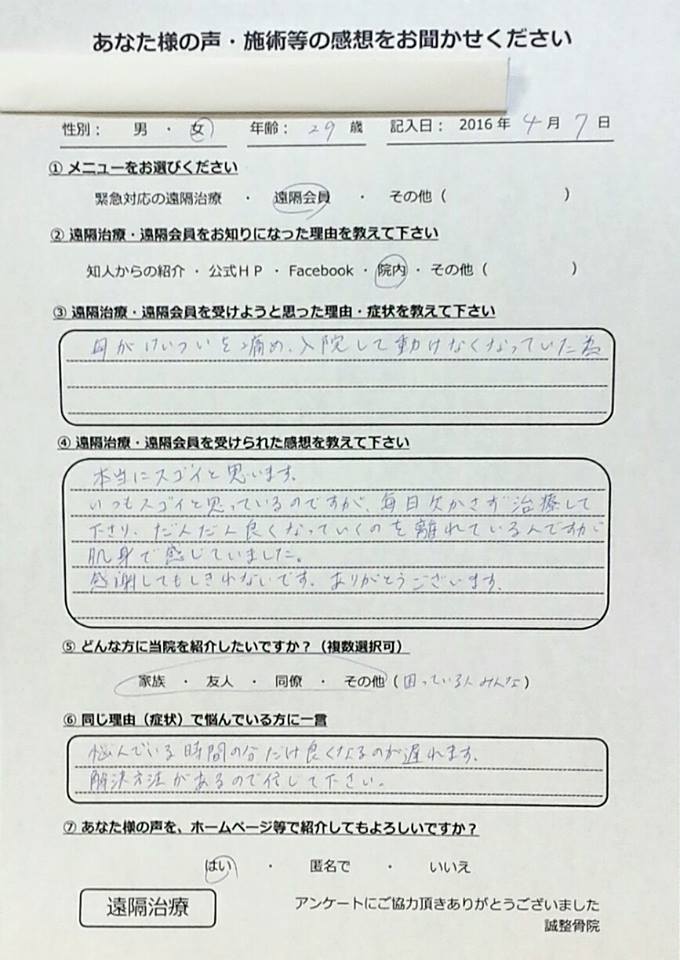 あなた様の声・施術等の感想をお聞かせください
性別： 男 ・ 女 年齢： 29 歳 記入日： 2016 年 4 月 7 日
① メニューをお選びください
緊急対応の遠隔治療 ・ 遠隔会員 ・ その他（ ）
② 遠隔治療・遠隔会員をお知りになった理由を教えて下さい
知人からの紹介 ・ 公式ＨＰ ・ Facebook ・ 院内 ・ その他（ ）
③ 遠隔治療・遠隔会員を受けようと思った理由・症状を教えて下さい
母がけいついを痛め、入院して動けなくなっていた為
④ 遠隔治療・遠隔会員を受けられた感想を教えて下さい
本当にスゴイと思います。
いつもスゴイと思っているのですが、毎日欠かさず治療して
下さり、だんだん良くなっていくのを離れているんですが
肌身で感じていました。
感謝してもしきれないです。ありがとうございます。
⑤ どんな方に当院を紹介したいですか？（複数選択可）
家族 ・ 友人 ・ 同僚 ・ その他（困っている人みんな）
⑥ 同じ理由（症状）で悩んでいる方に一言
悩んでいる時間の分だけ良くなるのが遅れます。
解決方法があるので信じて下さい。
⑦ あなた様の声を、ホームページ等で紹介してもよろしいですか？
はい ・ 匿名で ・ いいえ
遠隔治療
アンケートにご協力頂きありがとうございました
誠整骨院